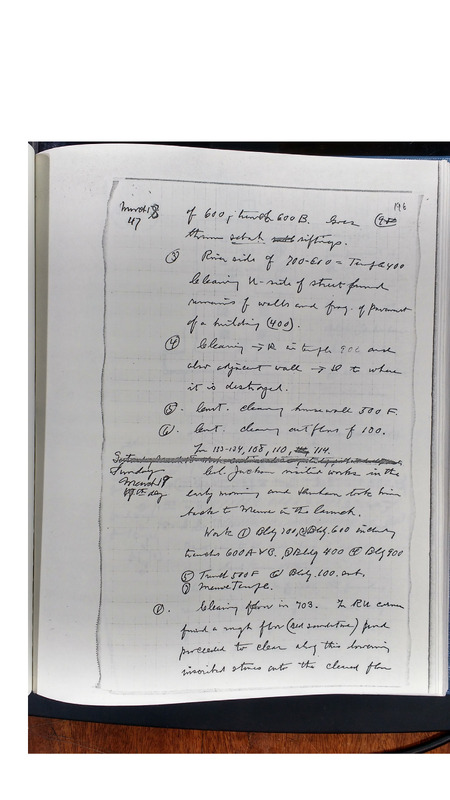 196
March 18
47
of 600, trench 600 B. Goes
thru sebakh siftings.
③ River side of 700-600 = Temple 400
Clearing N-side of street found
remains of walls and frag. of pavement
of a building (400).
④ Clearing → R in temple 900 and
also adjacent wall → R to where
it is destroyed.
⑤. Cont. clearing house wall 500 F.
⑥. Cont. clearing out floors of 100.
In 108, 110, 114.
Sunday
March 18
Col. Jackson visited works in the
early morning and took him
back to Merwe in the launch.
Work ① Bldg 700, ② Bldg 600 including
trenches 600 A & B. ③ Bldg 400 ④ Bldg 900
⑤ Trench 500 F ⑥ Bldg. 100. ant.
⑦ Temple.
①. Clearing floor in 703. In RU corner
found a rough floor (red sandstone) and
proceeded to clear along this lowering
inscribed stones onto the cleared floor